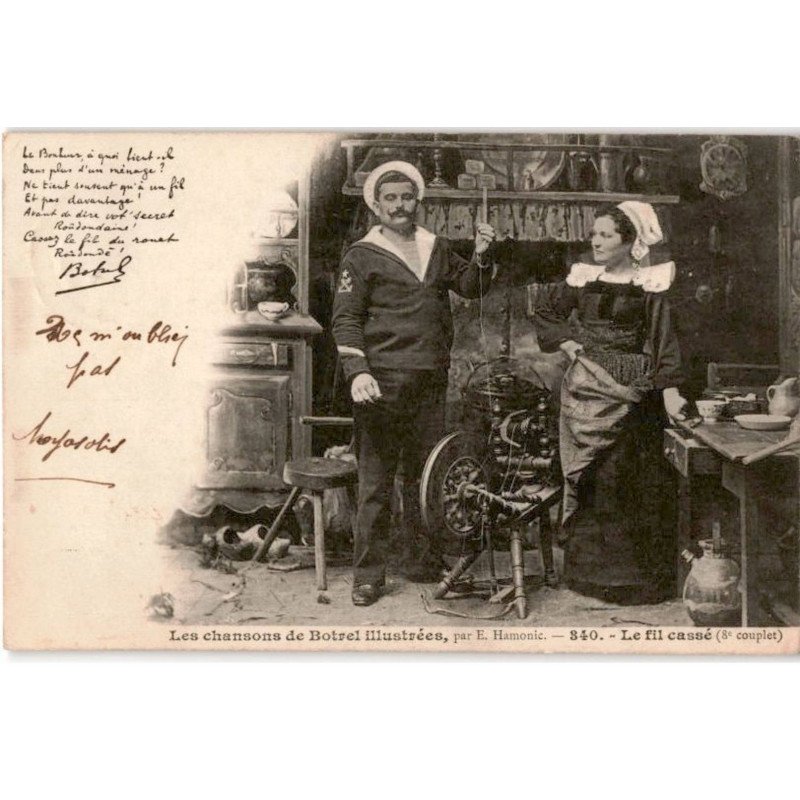 Le Bonheur, à quoi tient-il
Deux plus d'un ménage?
Ne tient souvent qu'à un fil
Et pas davantage!
Avant de dire vot' secret
Roudondaine!
Cassez le fil du rouet
Roudondé!
Botrel
Ne m'oubliez
pas
Les chansons de Botrel illustrées, par E. Hamonic. — 340. - Le fil cassé (8e couplet)